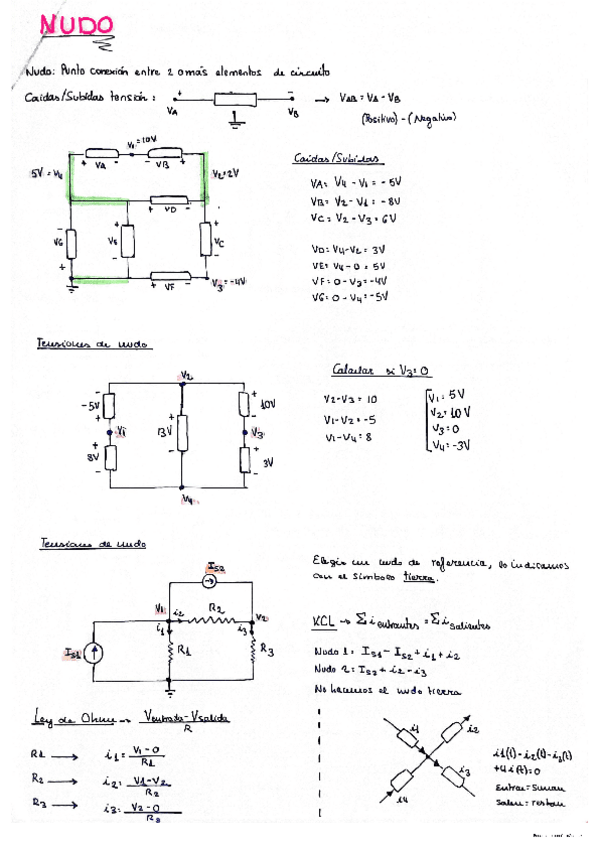 NUDO
Nudo: Punto conexión entre 2 o más elementos de circuito
Caídas/Subidas tensión:
VA
+
-
VB
→ VAB = VA - VB
(Positivo) - (Negativo)
V1 = 10V
5V = V4
+ VA -
- VB +
V2 = 2V
+ VD -
VG
VE
VC
+ VF -
V3 = -4V
Caídas/Subidas
VA = V4 - V1 = -5V
VB = V2 - V1 = -8V
VC = V2 - V3 = 6V
VD = V4 - V2 = 3V
VE = V4 - 0 = 5V
VF = 0 - V3 = -4V
VG = 0 - V4 = -5V
Tensiones de nudo
V2
-5V
10V
V1
13V
V3
8V
3V
V4
Calcular si V3 = 0
V2 - V3 = 10
V1 - V2 = -5
V1 - V4 = 8
V1 = 5V
V2 = 10V
V3 = 0
V4 = -3V
Tensiones de nudo
IS2
V1
i2
R2
V2
i1
i3
IS1
R1
R3
Elegir un nudo de referencia, lo indicamos
con el símbolo tierra.
KCL → Σ i entrantes = Σ i salientes
Nudo 1: IS1 - IS2 + i1 + i2
Nudo 2: IS2 + i2 - i3
No hacemos el nudo tierra
Ley de Ohm → Ventrada - Vsalida / R
R1 → i1 = V1 - 0 / R1
R2 → i2 = V1 - V2 / R2
R3 → i3 = V2 - 0 / R3
i1
i2
i3
i4
i1(t) - i2(t) - i3(t)
+ i4(t) = 0
Entran = Suman
Salen = restan